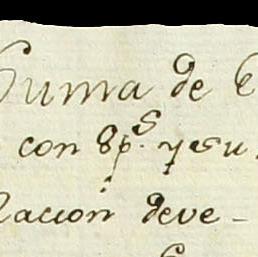 Suma de
con 8p.s y su
lacion deve-